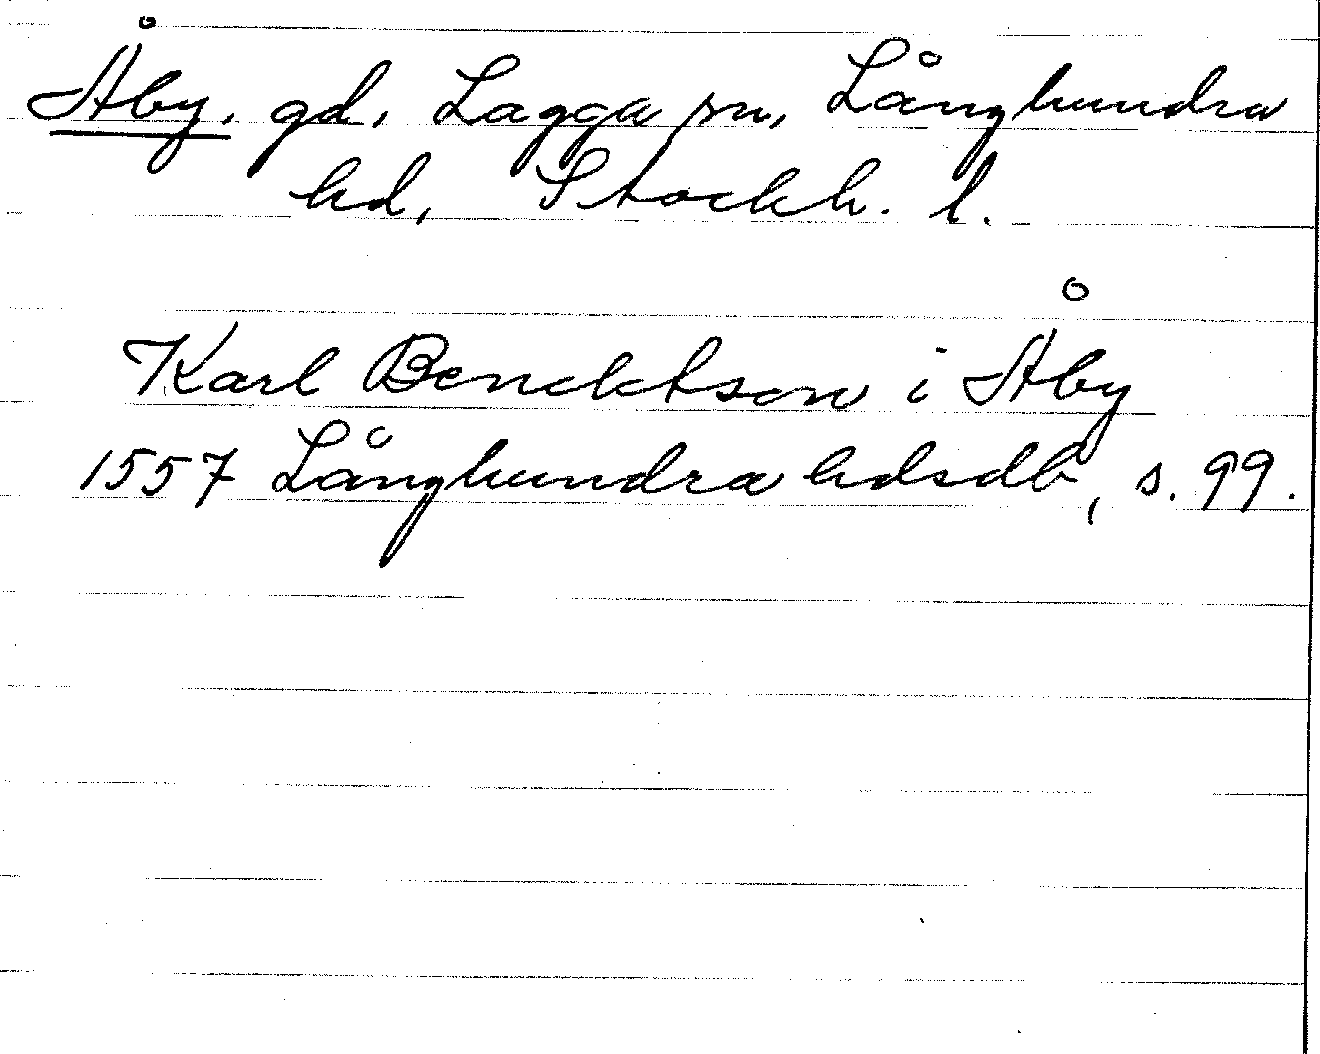 Åby, gd, Lagga sn, Långhundra
hd, Stockh. l.
Karl Bencktson i Åby
1557 Långhundra hdsdb, s. 99.